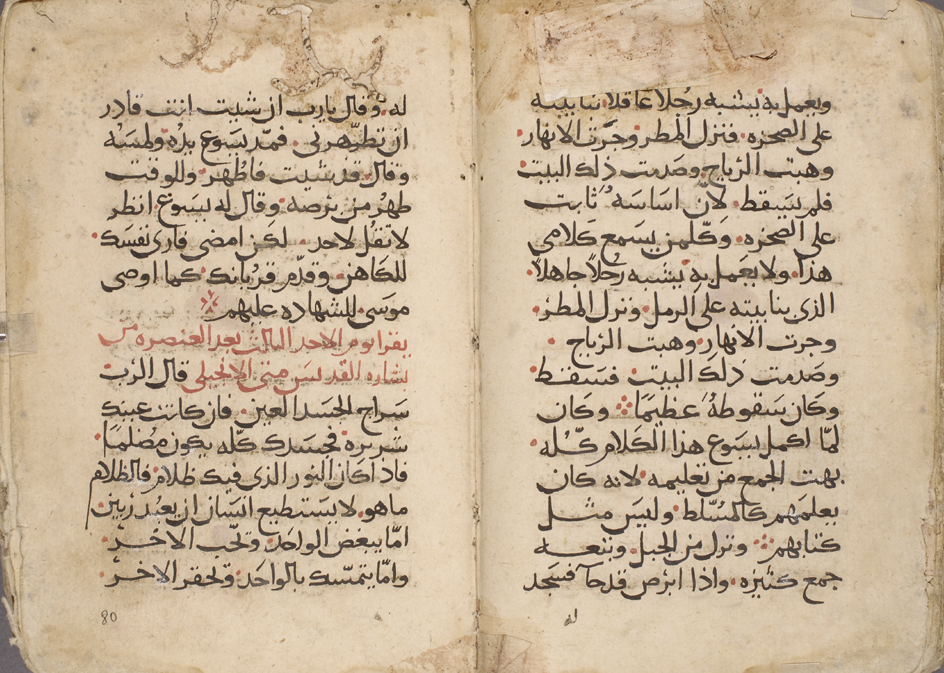 ويعمل به يشبه رجلا عاقلا بنا بيته
على الصخره. فنزل المطر وجرت الانهار
وهبت الرياح وصدمت ذلك البيت
فلم يسقط. لان اساسه ثابت
على الصخره. وكلمن يسمع كلامي
هذا ولا يعمل به يشبه رجلا جاهلا
الذي بنا بيته على الرمل ونزل المطر
وجرت الانهار وهبت الرياح
وصدمت ذلك البيت فسقط
وكان سقوطه عظيما وكان
لما اكمل يسوع هذا الكلام كله
بهت الجمع من تعليمه لانه كان
يعلمهم كالمسلط وليس مثل
كتابهم ونزل من الجبل وتبعه
جمع كثيره واذا ابرص قد جا فسجد
له
له وقال يا رب ان شيت انت قادر
ان تطهرني فمد يسوع يده ولمسه
وقال قد شيت فاطهر وللوقت
طهر من برصه وقال له يسوع انظر
لا تقل لاحد لكن امضي فاري نفسك
للكاهن وقدم قربانك كما اوصى
موسى للشهاده عليهم
يقرا يوم الاحد الثالث بعد العنصره من
بشاره القديس متى الانجيلي قال الرب
سراج الجسد العين فان كانت عينك
شريره فجسدك كله يكون مظلما
فاذا كان النور الذي فيك ظلام فالظلام
ما هو لا يستطيع انسان ان يعبد ربين
اما يبغض الواحد وتحب الاخر
واما يتمسك بالواحد وتحقر الاخر
80